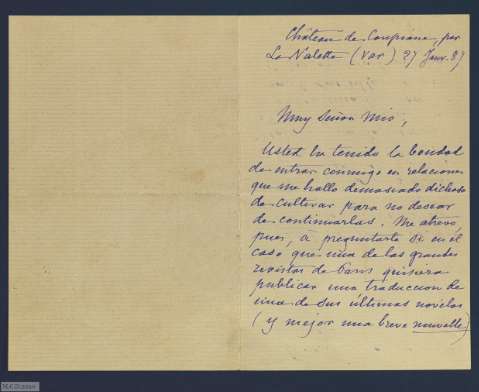 Château de Coupiane, par
La Valette (Var) 27 Janv. 87
Muy Señor mio,
Usted ha tenido la bondad
de entrar conmigo en relaciones
que me hallo demasiado dichoso
de cultivar para no desear
de continuarlas. Me atrevo,
pues, á preguntarle si en el
caso que una de las grandes
revistas de Paris quisiera
publicar una traduccion de
una de sus últimas novelas
(y mejor una breve nouvelle)